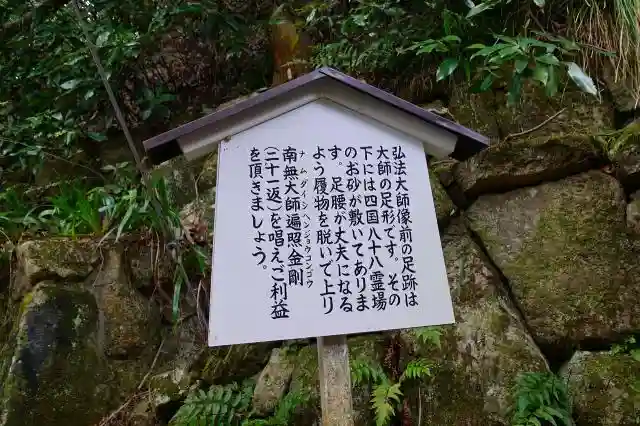 弘法大師像前の足跡は
大師の足形です。その
下には四国八十八霊場
のお砂が敷いてありま
す。足腰が丈夫になる
よう履物を脱いで上り
ナムダイシヘンジョウコンゴウ
南無大師遍照金剛
(二十一返)を唱えご利益
を頂きましょう。